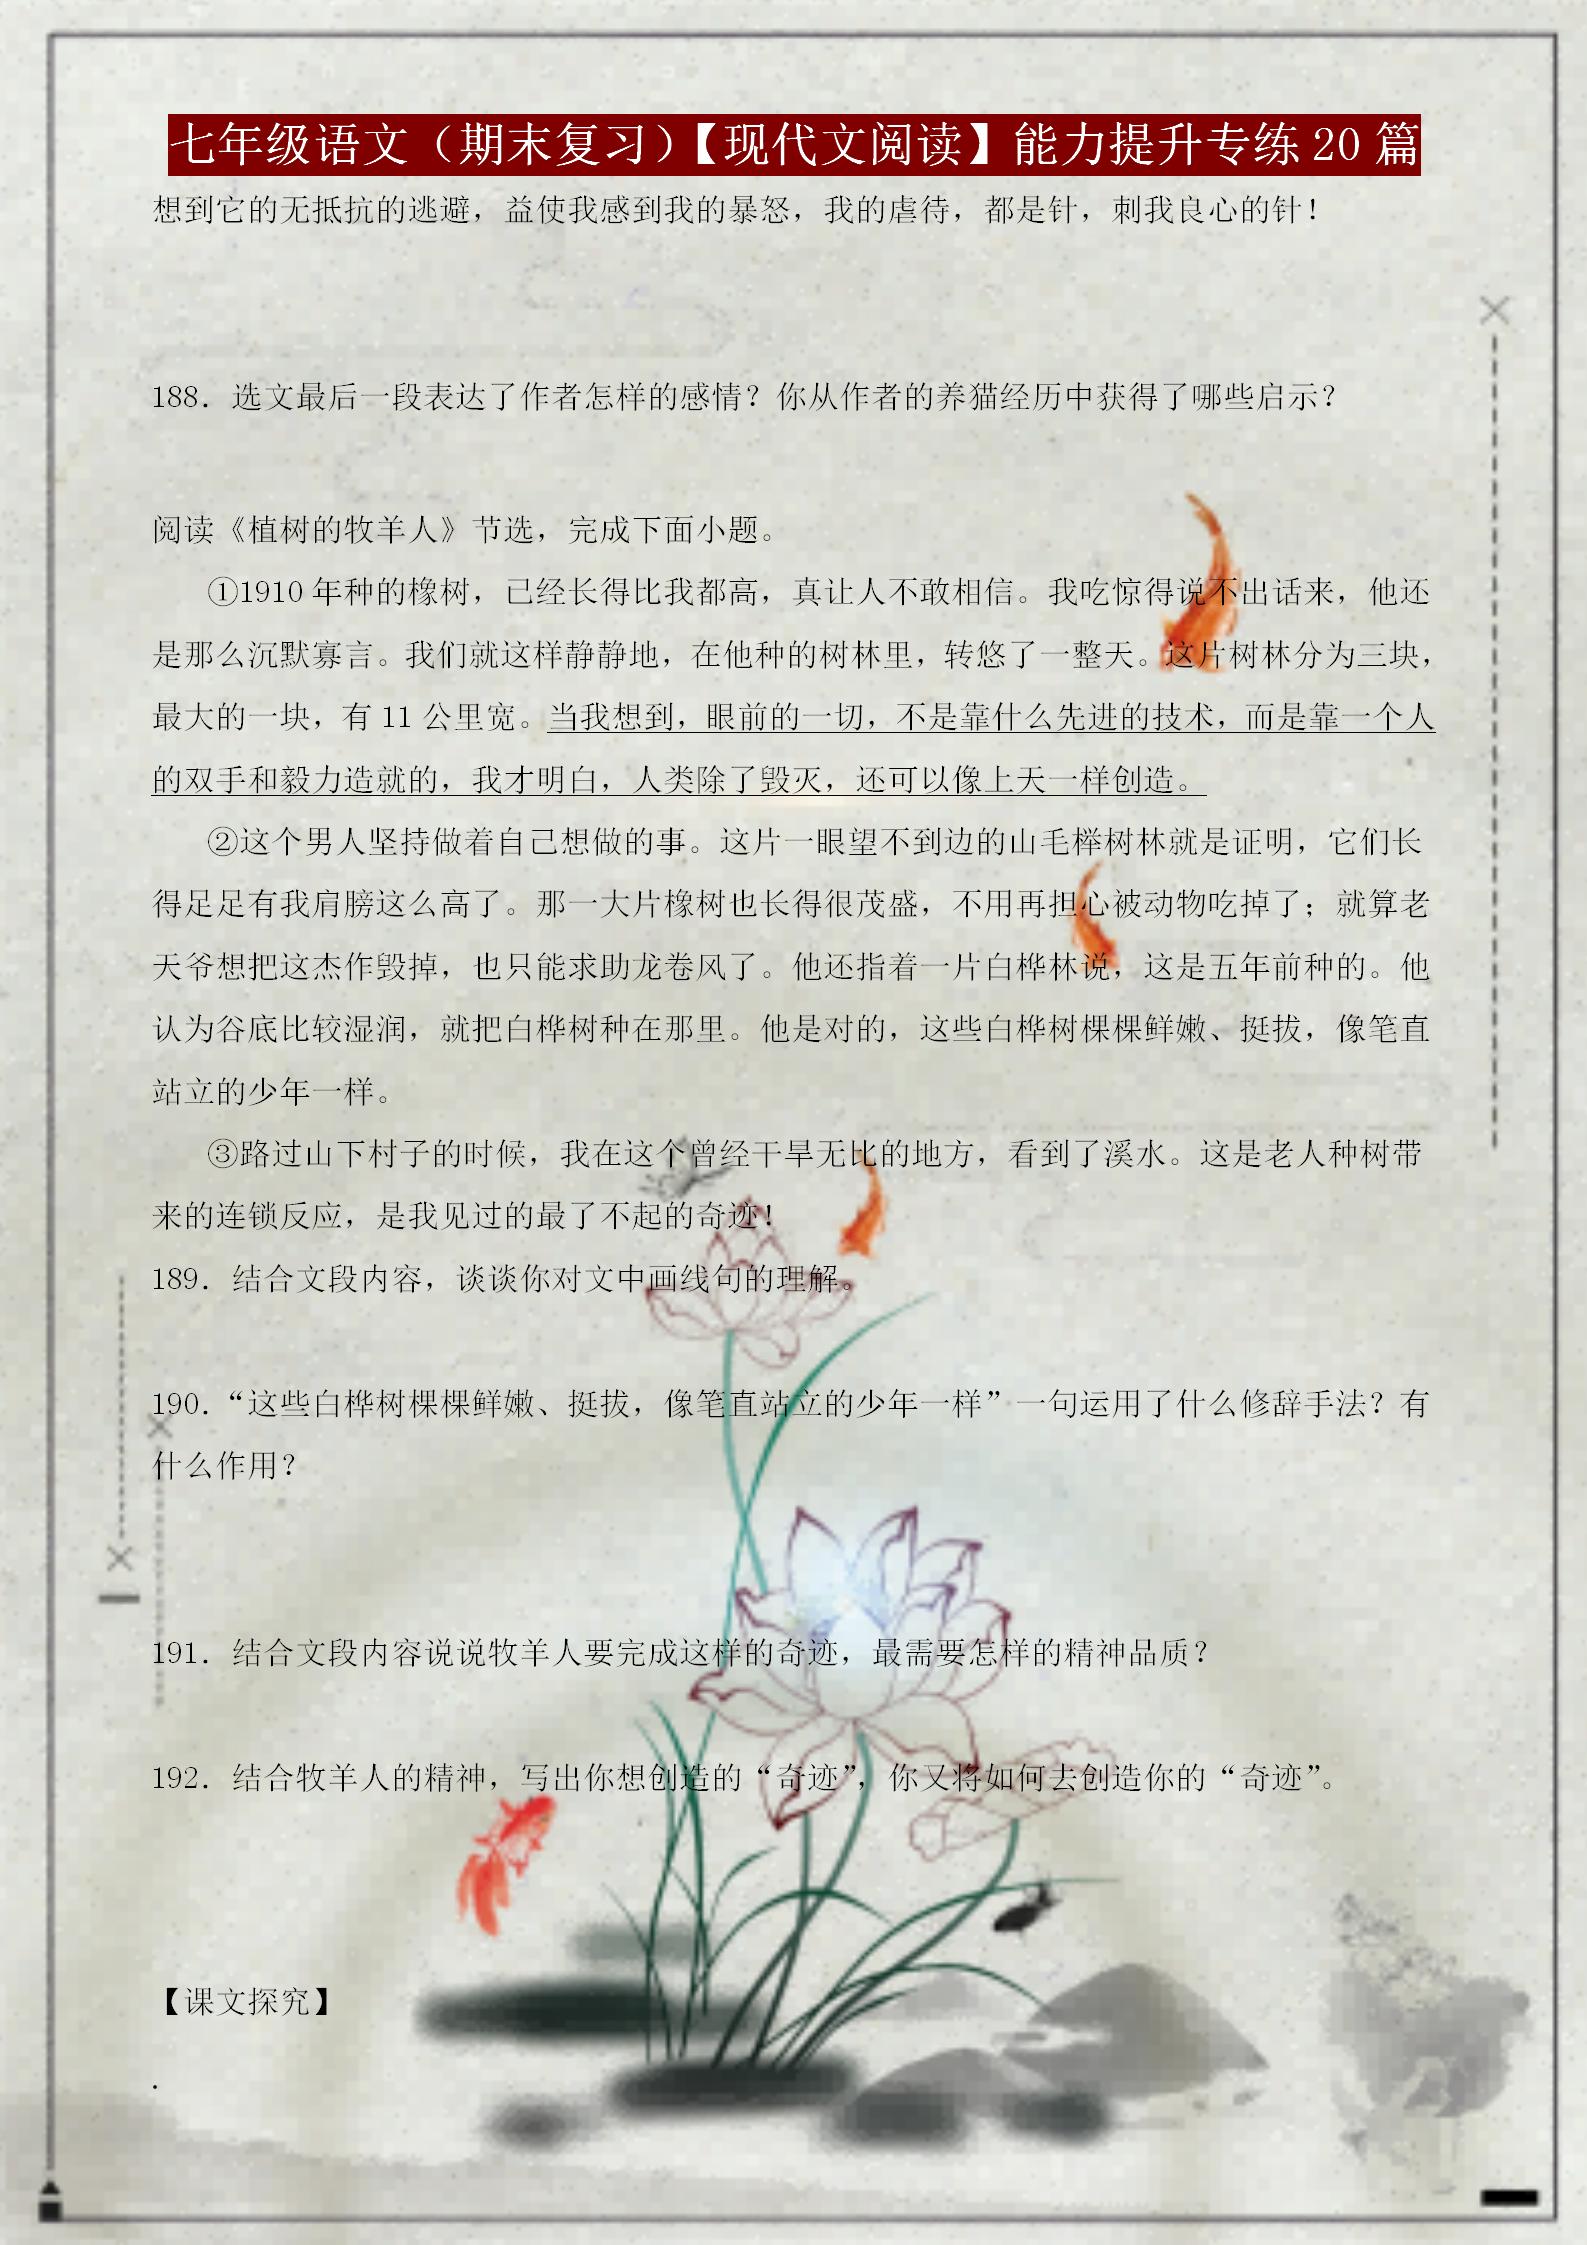 七年级语文（期末复习）【现代文阅读】能力提升专练 20 篇
想到它的无抵抗的逃避，益使我感到我的暴怒，我的虐待，都是针，刺我良心的针！
188．选文最后一段表达了作者怎样的感情？你从作者的养猫经历中获得了哪些启示？
阅读《植树的牧羊人》节选，完成下面小题。
①1910 年种的橡树，已经长得比我都高，真让人不敢相信。我吃惊得说不出话来，他还
是那么沉默寡言。我们就这样静静地，在他种的树林里，转悠了一整天。这片树林分为三块，
最大的一块，有 11 公里宽。当我想到，眼前的一切，不是靠什么先进的技术，而是靠一个人
的双手和毅力造就的，我才明白，人类除了毁灭，还可以像上天一样创造。
②这个男人坚持做着自己想做的事。这片一眼望不到边的山毛榉树林就是证明，它们长
得足足有我肩膀这么高了。那一大片橡树也长得很茂盛，不用再担心被动物吃掉了；就算老
天爷想把这杰作毁掉，也只能求助龙卷风了。他还指着一片白桦林说，这是五年前种的。他
认为谷底比较湿润，就把白桦树种在那里。他是对的，这些白桦树棵棵鲜嫩、挺拔，像笔直
站立的少年一样。
③路过山下村子的时候，我在这个曾经干旱无比的地方，看到了溪水。这是老人种树带
来的连锁反应，是我见过的最了不起的奇迹！
189．结合文段内容，谈谈你对文中画线句的理解。
190．“这些白桦树棵棵鲜嫩、挺拔，像笔直站立的少年一样”一句运用了什么修辞手法？有
什么作用？
191．结合文段内容说说牧羊人要完成这样的奇迹，最需要怎样的精神品质？
192．结合牧羊人的精神，写出你想创造的“奇迹”，你又将如何去创造你的“奇迹”。
【课文探究】
.